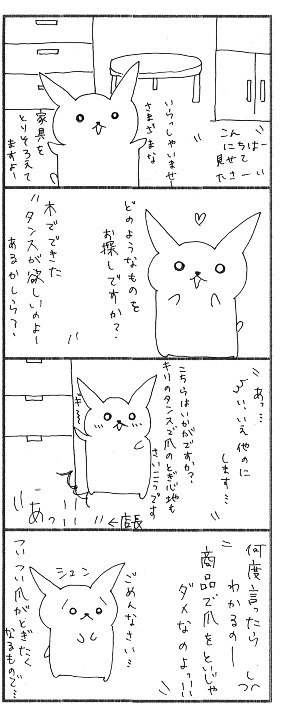 こんにちはー
見せて
くださーい
いらっしゃいませ
さまざまな
家具を
とりそろえて
ますよ♪
♡
どのようなものを
お探しですか?
木でできた
タンスが欲しいのよー
あるかしら?
こちらはいかがですか?
キリのタンスで爪のとぎ心地も
さいこうです
ギー
あっ…
いいえ他のに
します…
あっ!!
←店長
何度言ったら
わかるのー
商品で爪をといじゃ
ダメなのよっ!!
シュン
ごめんなさい…
ついつい爪がとぎたく
なるもので…